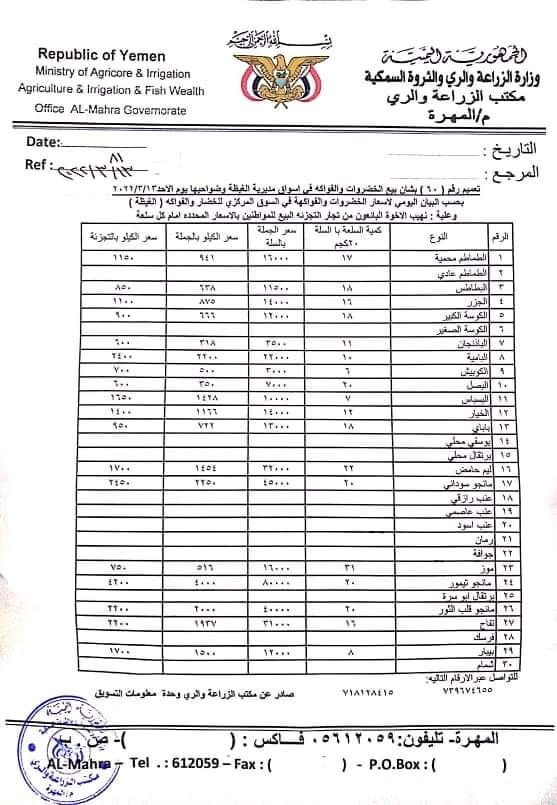 بسم الله الرحمن الرحيم
Republic of Yemen
Ministry of Agricore & Irrigation
Agriculture & Irrigation & Fish Wealth
Office AL-Mahra Governorate
الجمهورية اليمنية
وزارة الزراعة والري والثروة السمكية
مكتب الزراعة والري
م/المهرة
Date:
Ref :
التاريخ :
المرجع :
تعميم رقم (٦٠) بشان بيع الخضروات والفواكه في اسواق مديرية الغيظة وضواحيها يوم الاحد ٢٠٢٢/٣/١٣
بحسب البيان اليومي لاسعار الخضروات والفواكهة في السوق المركزي للخضار والفواكه (الغيظة)
وعلية : نهيب الاخوة البائعون من تجار التجزئه البيع للمواطنين بالاسعار المحدده امام كل سلعة
الرقم النوع كمية السلعة با السلة ٢٠كجم سعر الجملة بالسلة سعر الكيلو بالجملة سعر الكيلو بالتجزئة
١ الطماطم محمية ١٧ ١٦٠٠٠ ٩٤١ ١١٥٠
٢ الطماطم عادي
٣ البطاطس ١٨ ١١٥٠٠ ٦٣٨ ٨٥٠
٤ الجزر ١٦ ١٤٠٠٠ ٨٧٥ ١١٠٠
٥ الكوسة الكبير ١٨ ١٢٠٠٠ ٦٦٦ ٩٠٠
٦ الكوسة الصغير
٧ الباذنجان ١١ ٣٥٠٠ ٣١٨ ٦٠٠
٨ البامية ١٠ ٢٢٠٠٠ ٢٢٠٠ ٢٤٠٠
٩ الكوبيش ٦ ٣٠٠٠ ٥٠٠ ٧٠٠
١٠ البصل ٢٠ ٧٠٠٠ ٣٥٠ ٦٠٠
١١ البسباس ٧ ١٠٠٠٠ ١٤٢٨ ١٦٥٠
١٢ الخيار ١٢ ١٤٠٠٠ ١١٦٦ ١٤٠٠
١٣ باباي ١٨ ١٣٠٠٠ ٧٢٢ ٩٥٠
١٤ يوسفي محلي
١٥ برتقال محلي
١٦ ليم حامض ٢٢ ٣٢٠٠٠ ١٤٥٤ ١٧٠٠
١٧ مانجو سوداني ٢٠ ٤٥٠٠٠ ٢٢٥٠ ٢٤٥٠
١٨ عنب رازقي
١٩ عنب عاصمي
٢٠ عنب اسود
٢١ رمان
٢٢ جوافة
٢٣ موز ٣١ ١٦٠٠٠ ٥١٦ ٧٥٠
٢٤ مانجو تيمور ٢٠ ٨٠٠٠٠ ٤٠٠٠ ٤٢٠٠
٢٥ برتقال ابو سرة
٢٦ مانجو قلب الثور ٢٠ ٤٠٠٠٠ ٢٠٠٠ ٢٢٠٠
٢٧ تفاح ١٦ ٣١٠٠٠ ١٩٣٧ ٢٢٠٠
٢٨ فرسك
٢٩ بيبار ٨ ١٢٠٠٠ ١٥٠٠ ١٧٠٠
٣٠ شمام
للتواصل عبر الارقام التاليه:
٧٣٩٦٧٤٦٥٥ ٧١٨١٢٨٤١٥ صادر عن مكتب الزراعة والري وحدة معلومات التسويق
المهرة- تليفون: ٠٥٦١٢٠٥٩ فـاكـس : ( )- ص . ب
AL-Mahra – Tel . : 612059 – Fax : ( ) - P.O.Box : ( )
مكتب الزراعة والري
م/المهرة